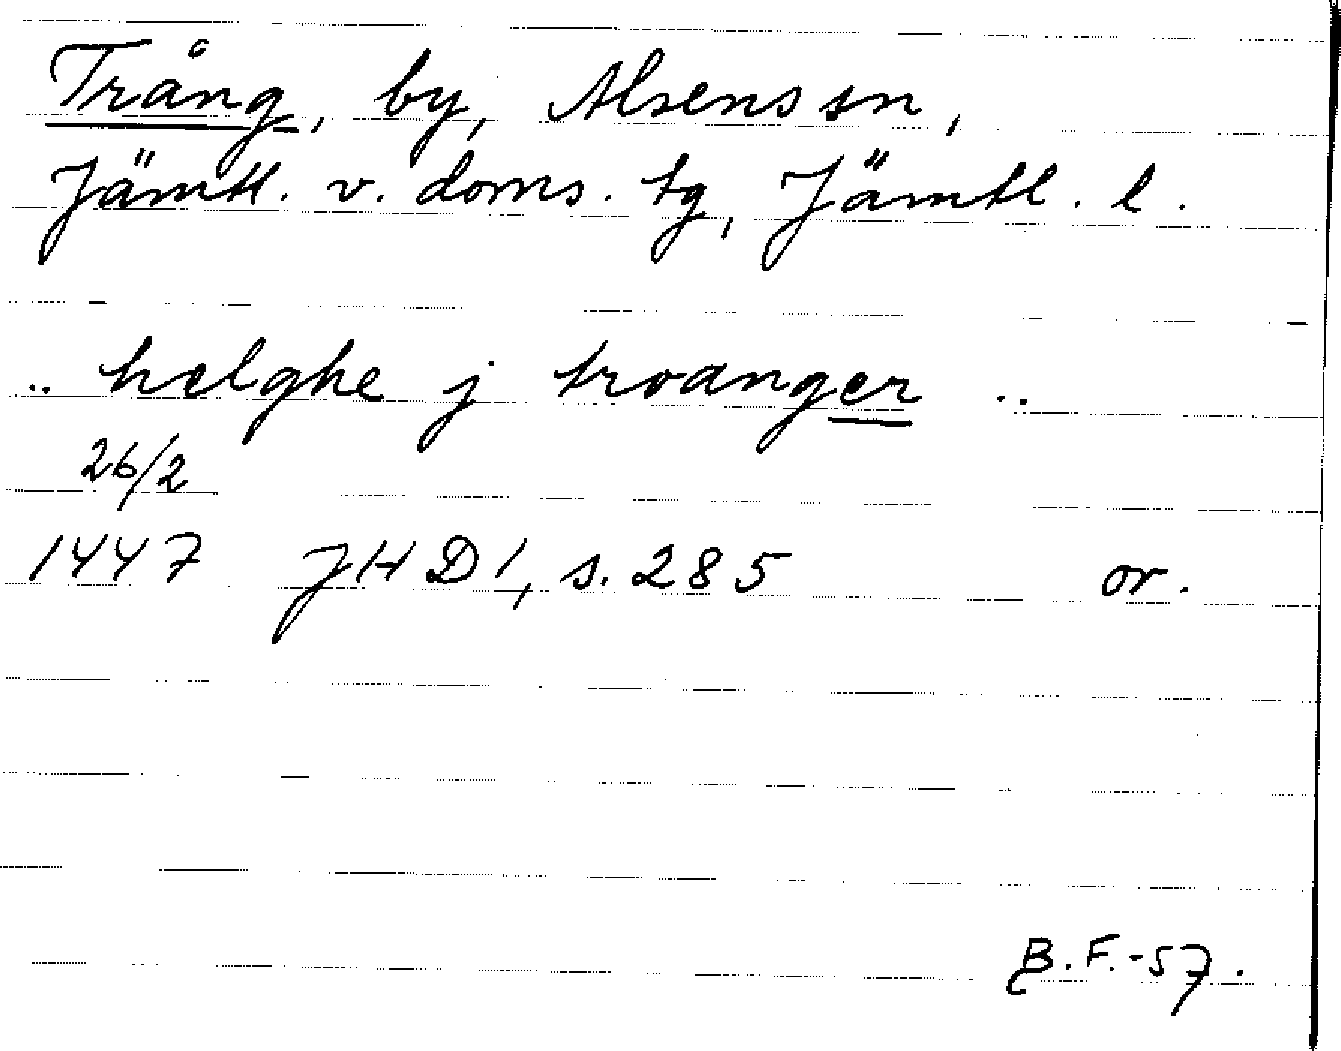 Trång, by, Alsens sn,
Jämtl. v. doms. tg, Jämtl. l.
.. helghe j troanger ..
26/2
1447 JHD 1, s. 285 or.
B.F.-57.